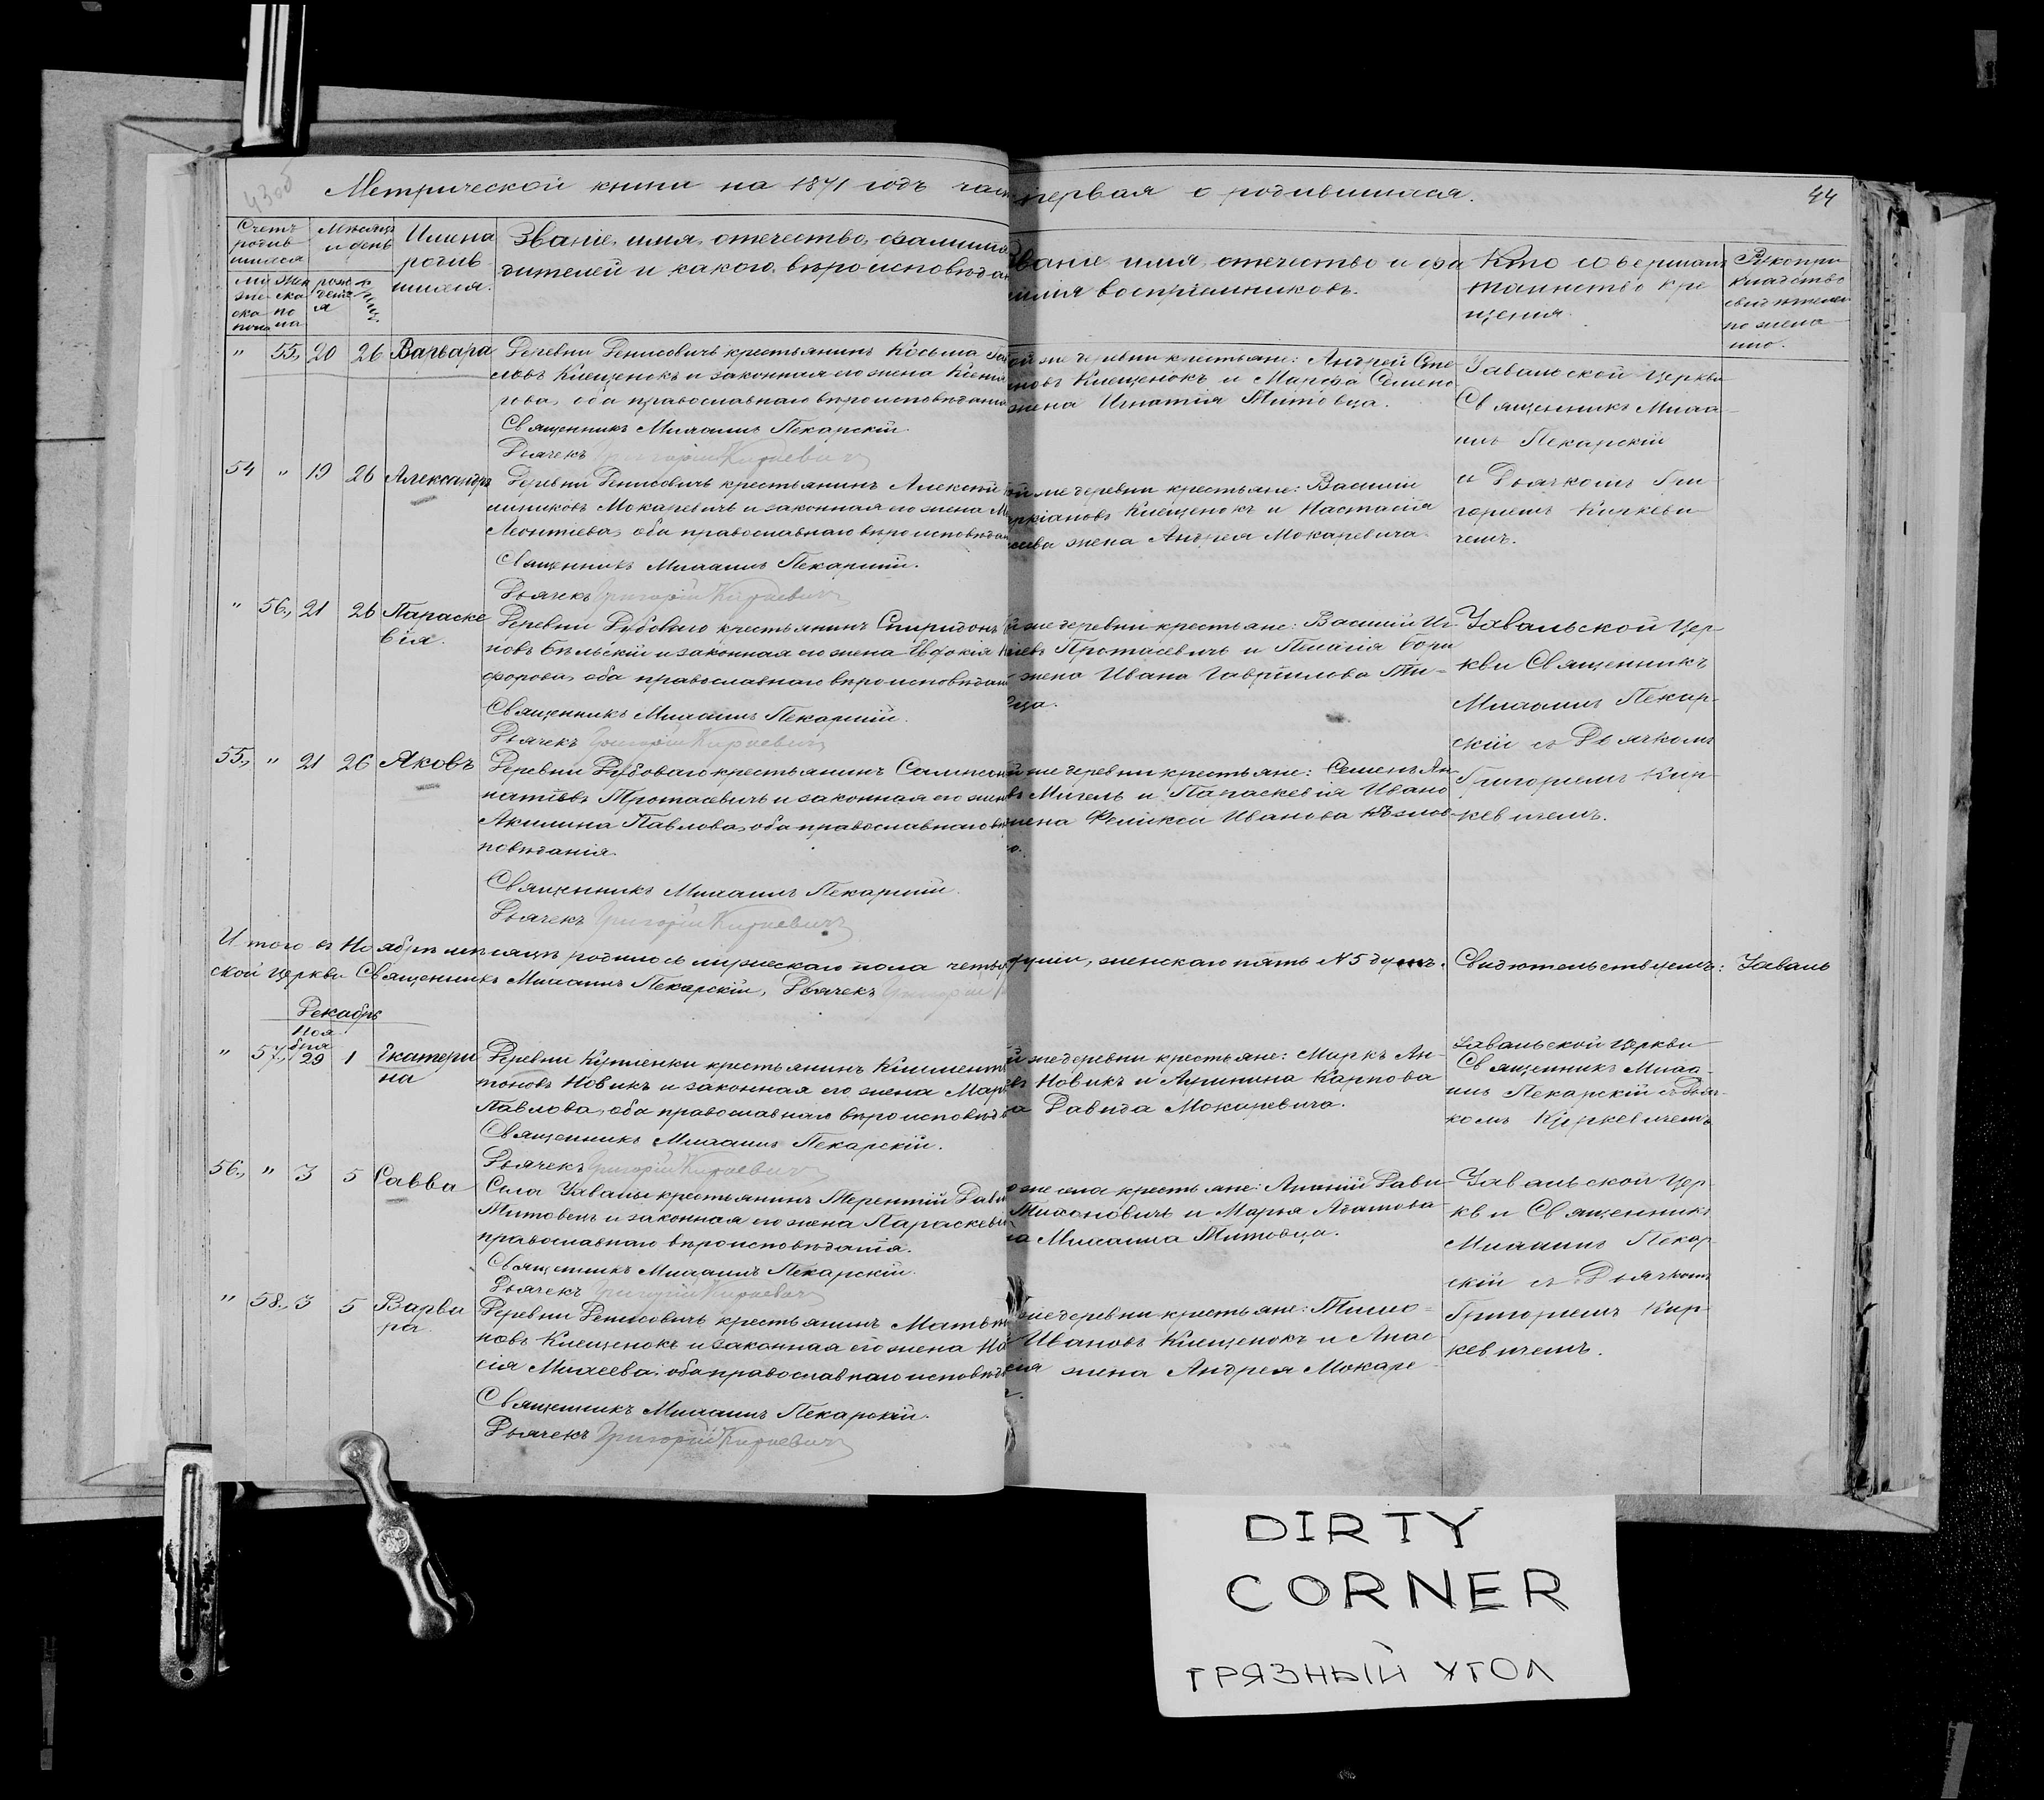 43об
Метрической книги на 1871 годъ часть первая о родившихся.
44
Счетъ родившихся
Мѣсяцъ и день
Имена родившихся.
Званіе, имя, отечество, фамилія
дителей и какого вѣроисповѣдан
Званіе имя отечество и фа
милія воспріемниковъ.
Кто совершалъ
таинство кре
щенія.
Рукопри
кладство
свидѣтелей
по жела
нію.
" 55, 20 26 Варвара
Деревни Денисовичъ крестьянинъ Косьма
словъ Клещенокъ и законная его жена Ксенія
рова, оба православнаго вѣроисповѣданія
Священникъ Михаилъ Пекарскій.
Дьячекъ Григорій Киркевичъ
ой же деревни крестьяне: Андрей Сте
новъ Клещенокъ и Марфа Семено
жена Игнатія Титовца.
Уавальской Церкви
Священникъ Миха
илъ Пекарскій
и Дьячкомъ Гри
горіемъ Киркеви
чемъ.
54 " 19 26 Александръ
Деревни Денисовичъ крестьянинъ Алексѣй
никовъ Мокаревичъ и законная его жена М
Леонтіева, оба православнаго вѣроисповѣдан
Священникъ Михаилъ Пекарскій.
Дьячекъ Григорій Киркевичъ
й же деревни крестьяне: Василій
ркіановъ Клещенокъ и Настасія
жена Андрея Мокаревича.
" 56, 21 26 Параске
вія.
Деревни Дубоваго крестьянинъ Спиридонъ
новъ Бѣльскій и законная его жена Евфокія
форова, оба православнаго вѣроисповѣдан
Священникъ Михаилъ Пекарскій.
Дьячекъ Григорій Киркевичъ
й же деревни крестьяне: Василій Иг
Протасевичъ и Пелагія Бори
жена Ивана Гавріилова Ти-
вца.
Уавальской Цер
кви Священникъ
Михаилъ Пекар-
скій съ Дьячкомъ
Григоріемъ Кир-
кевичемъ.
55, " 21 26 Яковъ
Деревни Дубоваго крестьянинъ Сампсонъ
натіевъ Протасевичъ и законная его жена
Акилина Павлова, оба православнаго вѣ
повѣданія.
Священникъ Михаилъ Пекарскій.
Дьячекъ Григорій Киркевичъ
й же деревни крестьяне: Семенъ
въ Мигель и Параскевія Ивано
жена Феликса Иванова Козлов
го.
Итого въ Ноябрѣ мѣсяцѣ родилось мужескаго пола четыре души, женскаго пять №5 душъ. Свидѣтельствуемъ: Уаваль
ской Церкви Священникъ Михаилъ Пекарскій, Дьячекъ Григорій
Декабрь
Ноя
бря
" 57, 29 1 Екатери
на
Деревни Кутленки крестьянинъ Климентъ
тоновъ Новикъ и законная его жена Марѳ
Павлова, оба православнаго вѣроисповѣда
Священникъ Михаилъ Пекарскій.
Дьячекъ Григорій Киркевичъ
й же деревни крестьяне: Маркъ Ан-
Новикъ и Акилина Карпова
Давида Мокаревича.
Уавальской Церкви
Священникъ Миха-
илъ Пекарскій съ Дьяч-
комъ Киркевичемъ
56, " 3 5 Савва
Села Уавалы крестьянинъ Терентій Дави
Титовецъ и законная его жена Параскевія
православнаго вѣроисповѣданія.
Священникъ Михаилъ Пекарскій.
Дьячекъ Григорій Киркевичъ
же села крестьяне: Ананій Дави
Тихоновичъ и Марья Адамова
Михаила Титовца.
Уавальской Цер-
кви Священникъ
Михаилъ Пекар-
скій съ Дьячкомъ
Григоріемъ Кир-
кевичемъ.
" 58, 3 5 Варва
ра.
Деревни Денисовичъ крестьянинъ Матвѣй
новъ Клещенокъ и законная его жена На
сія Михеева, оба православнаго исповѣда
Священникъ Михаилъ Пекарскій.
Дьячекъ Григорій Киркевичъ
же деревни крестьяне: Тимо-
Ивановъ Клещенокъ и Анас
сія жена Андрея Мокаре
DIRTY
CORNER
ГРЯЗНЫЙ УГОЛ